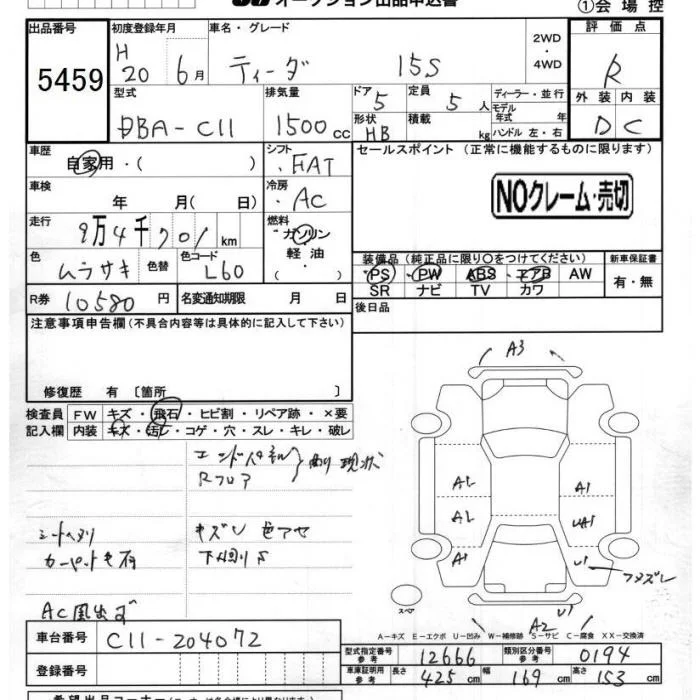 オークション出品申込書
①会場控
出品番号
5459
初度登録年月
H 20 6月
車名・グレード
ティーダ 15S
2WD
・
4WD
評価点
R
外装 内装
D C
型式
DBA-C11
排気量
1500cc
ドア 5
定員 5人
ディーラー・並行
モデル年式 年
形状 HB
積載 kg
ハンドル 左・右
車歴
自家用・( )
シフト
・FAT
セールスポイント (正常に機能するものに限ります)
NOクレーム・売切
車検
年 月( 日)
冷房
・AC
走行
9万4千701km
燃料
・ガソリン
軽油
・( )
色
ムラサキ
色替
色コード
L60
装備品(純正品に限り〇をつけてください)
PS PW ABS エアB AW
SR ナビ TV カワ
新車保証書
有・無
R券 10580円
名変通知期限 月 日
後日品
注意事項申告欄(不具合内容等は具体的に記入して下さい)
修復歴 有 〔箇所 〕
検査員
記入欄
FW キズ・飛石・ヒビ割・リペア跡・×要
内装 キズ・汚レ・コゲ・穴・スレ・キレ・破レ
エンドパネル
Rフロア
曲り 現状
シートヘタリ
カーペット
キズ U 色アセ
下回りS
AC風出ず
A3
A1
A1
A1
A1
UA1
U1
U1
A2
スペア
A-キズ E-エクボ U-凹み W-補修跡 S-サビ C-腐食 XX-交換済
車台番号 C11-204072
登録番号
型式指定番号
参考
12666
類別区分番号
参考
0194
車庫証明用
参考
長さ 425cm 幅 169cm 高さ 153cm
希望出品コーナー